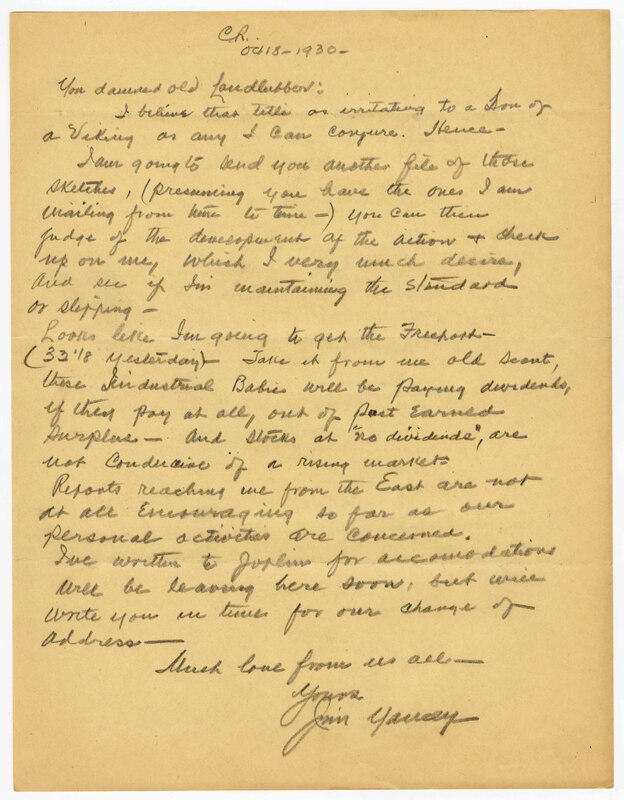 Ch.
Oct 18-1930-
You damned old Landlubber:
I believe that title as irritating to a Son of
a Viking as any I can conjure. Hence-
I am going to send you another file of these
sketches, (presuming you have the ones I am
mailing from time to time-) You can then
judge of the development of the action + check
up on me, which I very much desire,
and see if I'm maintaining the standard
or slipping-
Looks like I'm going to get the Freeport-
(33 1/8 yesterday)- Take it from me old scout,
these Industrial Babies will be paying dividends,
if they pay at all, out of past Earned
Surplus- And stocks at "no dividends", are
not conducive of a rising market-
Reports reaching me from the East are not
at all Encouraging so far as our
personal activities are concerned.
I've written to Joplin for accomodations
Will be leaving here soon, but will
write you in time for our change of
address-
Much love from us all-
Yours
Jim Yancey